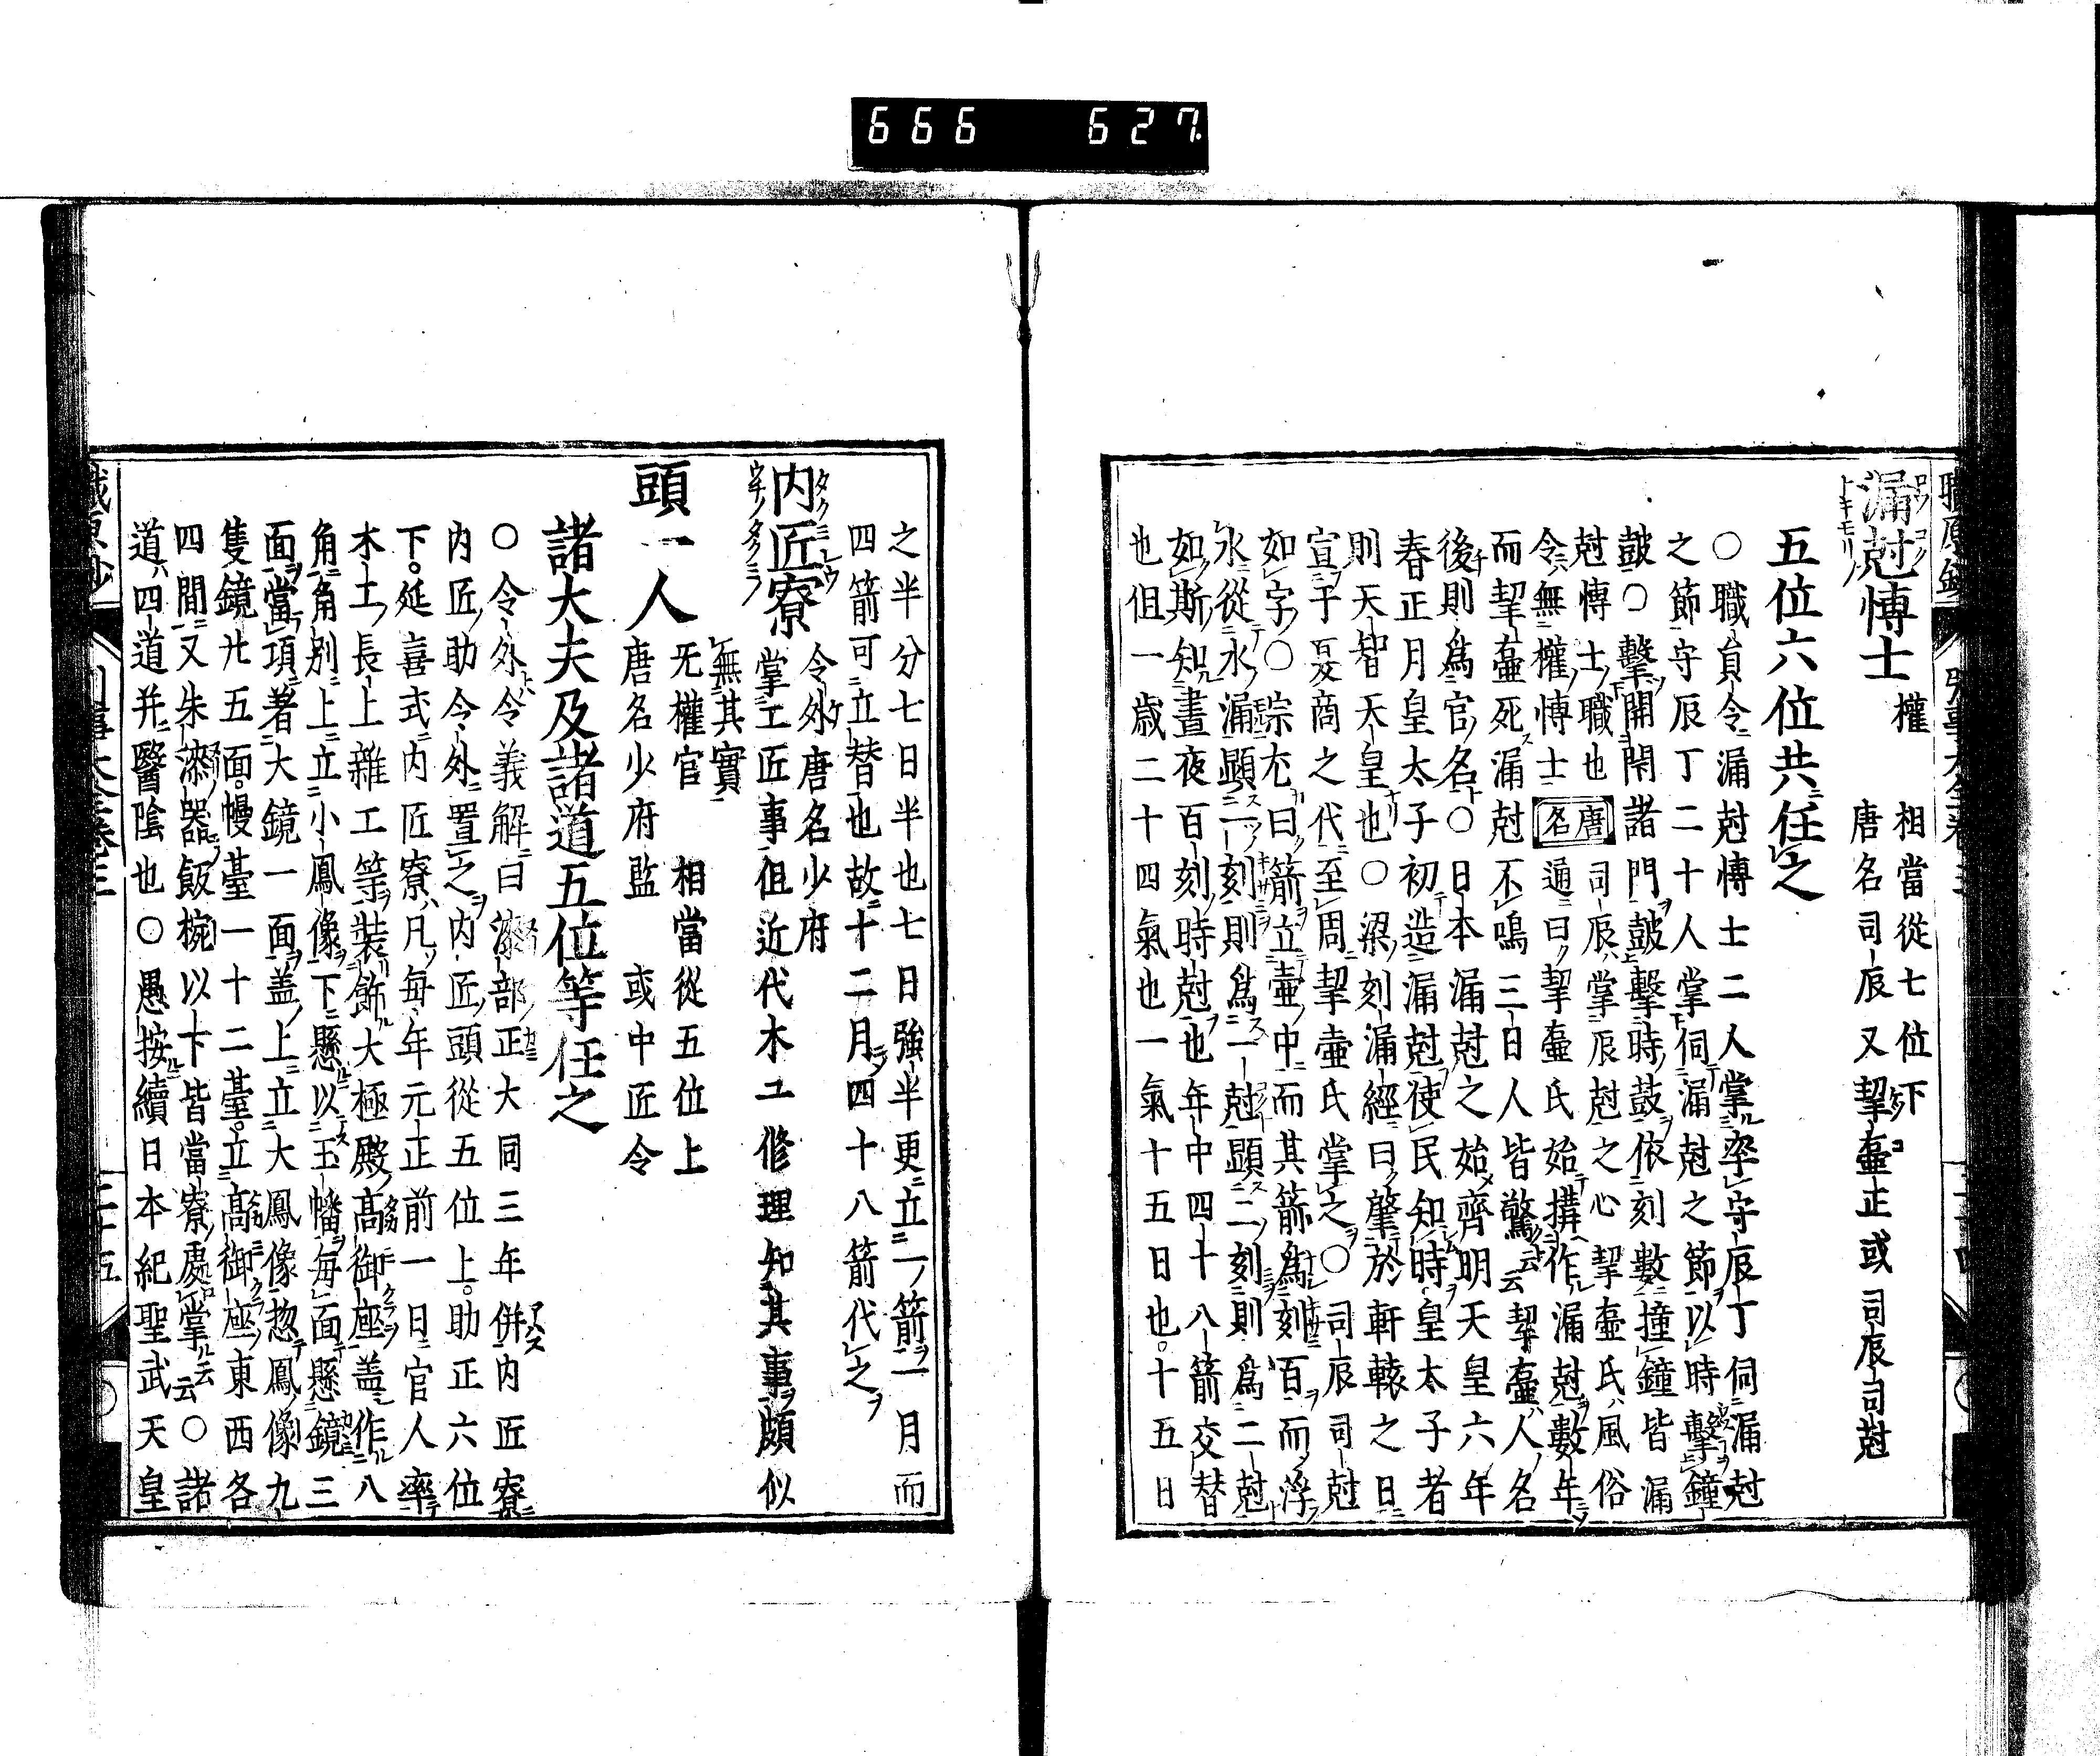 666 627
漏尅愽士 權 相當從七位下
唐名司辰又挈壷正或司辰司尅
五位六位共任之
○職員令漏尅愽士二人掌率守辰丁伺漏尅
之節守辰丁二十人掌伺漏尅之節以時擊鐘
皷○擊開閇諸門皷擊時皷依刻數撞鐘皆漏
尅愽士職也 司辰掌辰尅之心挈壷氏風俗
令無權愽士 唐名 通曰挈壷氏始搆作漏尅數年
而挈壷死漏尅不鳴三日人皆驚云云挈壷人名
後則爲官名○日本漏尅之始齊明天皇六年
春正月皇太子初造漏尅使民知時皇太子者
則天智天皇也○梁刻漏經曰肇於軒轅之日
宣于夏商之代至周挈壷氏掌之○司辰司尅
如字○綜尤曰箭立壷中而其箭爲刻百而浮
水從水漏顯一刻則爲一尅顯二刻則爲二尅
如斯知晝夜百刻時尅也年中四十八箭交替
也但一歳二十四氣也一氣十五日也十五日
之半分七日半也七日強半更立一箭一月而
四箭可立替也故十二月四十八箭代之
内匠寮 令外唐名少府
掌工匠事但近代木工修理知其事頗似
無其實
頭一人 无權官 相當從五位上
唐名少府監 或中匠令
諸大夫及諸道五位等任之
○令外令義解曰漆部正大同三年併内匠寮
内匠助令外置之内匠頭從五位上助正六位
下延喜式内匠寮凡毎年元正前一日官人率
木土長上雜工等裝飾大極殿高御座盖作八
角角別上立小鳳像下懸以玉幡毎面懸鏡三
面當項著大鏡一面盖上立大鳳像惣鳳像九
隻鏡廾五面幔臺一十二臺立高御座東西各
四間又朱漆器飯椀以下皆當寮處掌云云○諸
道四道并醫陰也○愚按續日本紀聖武天皇